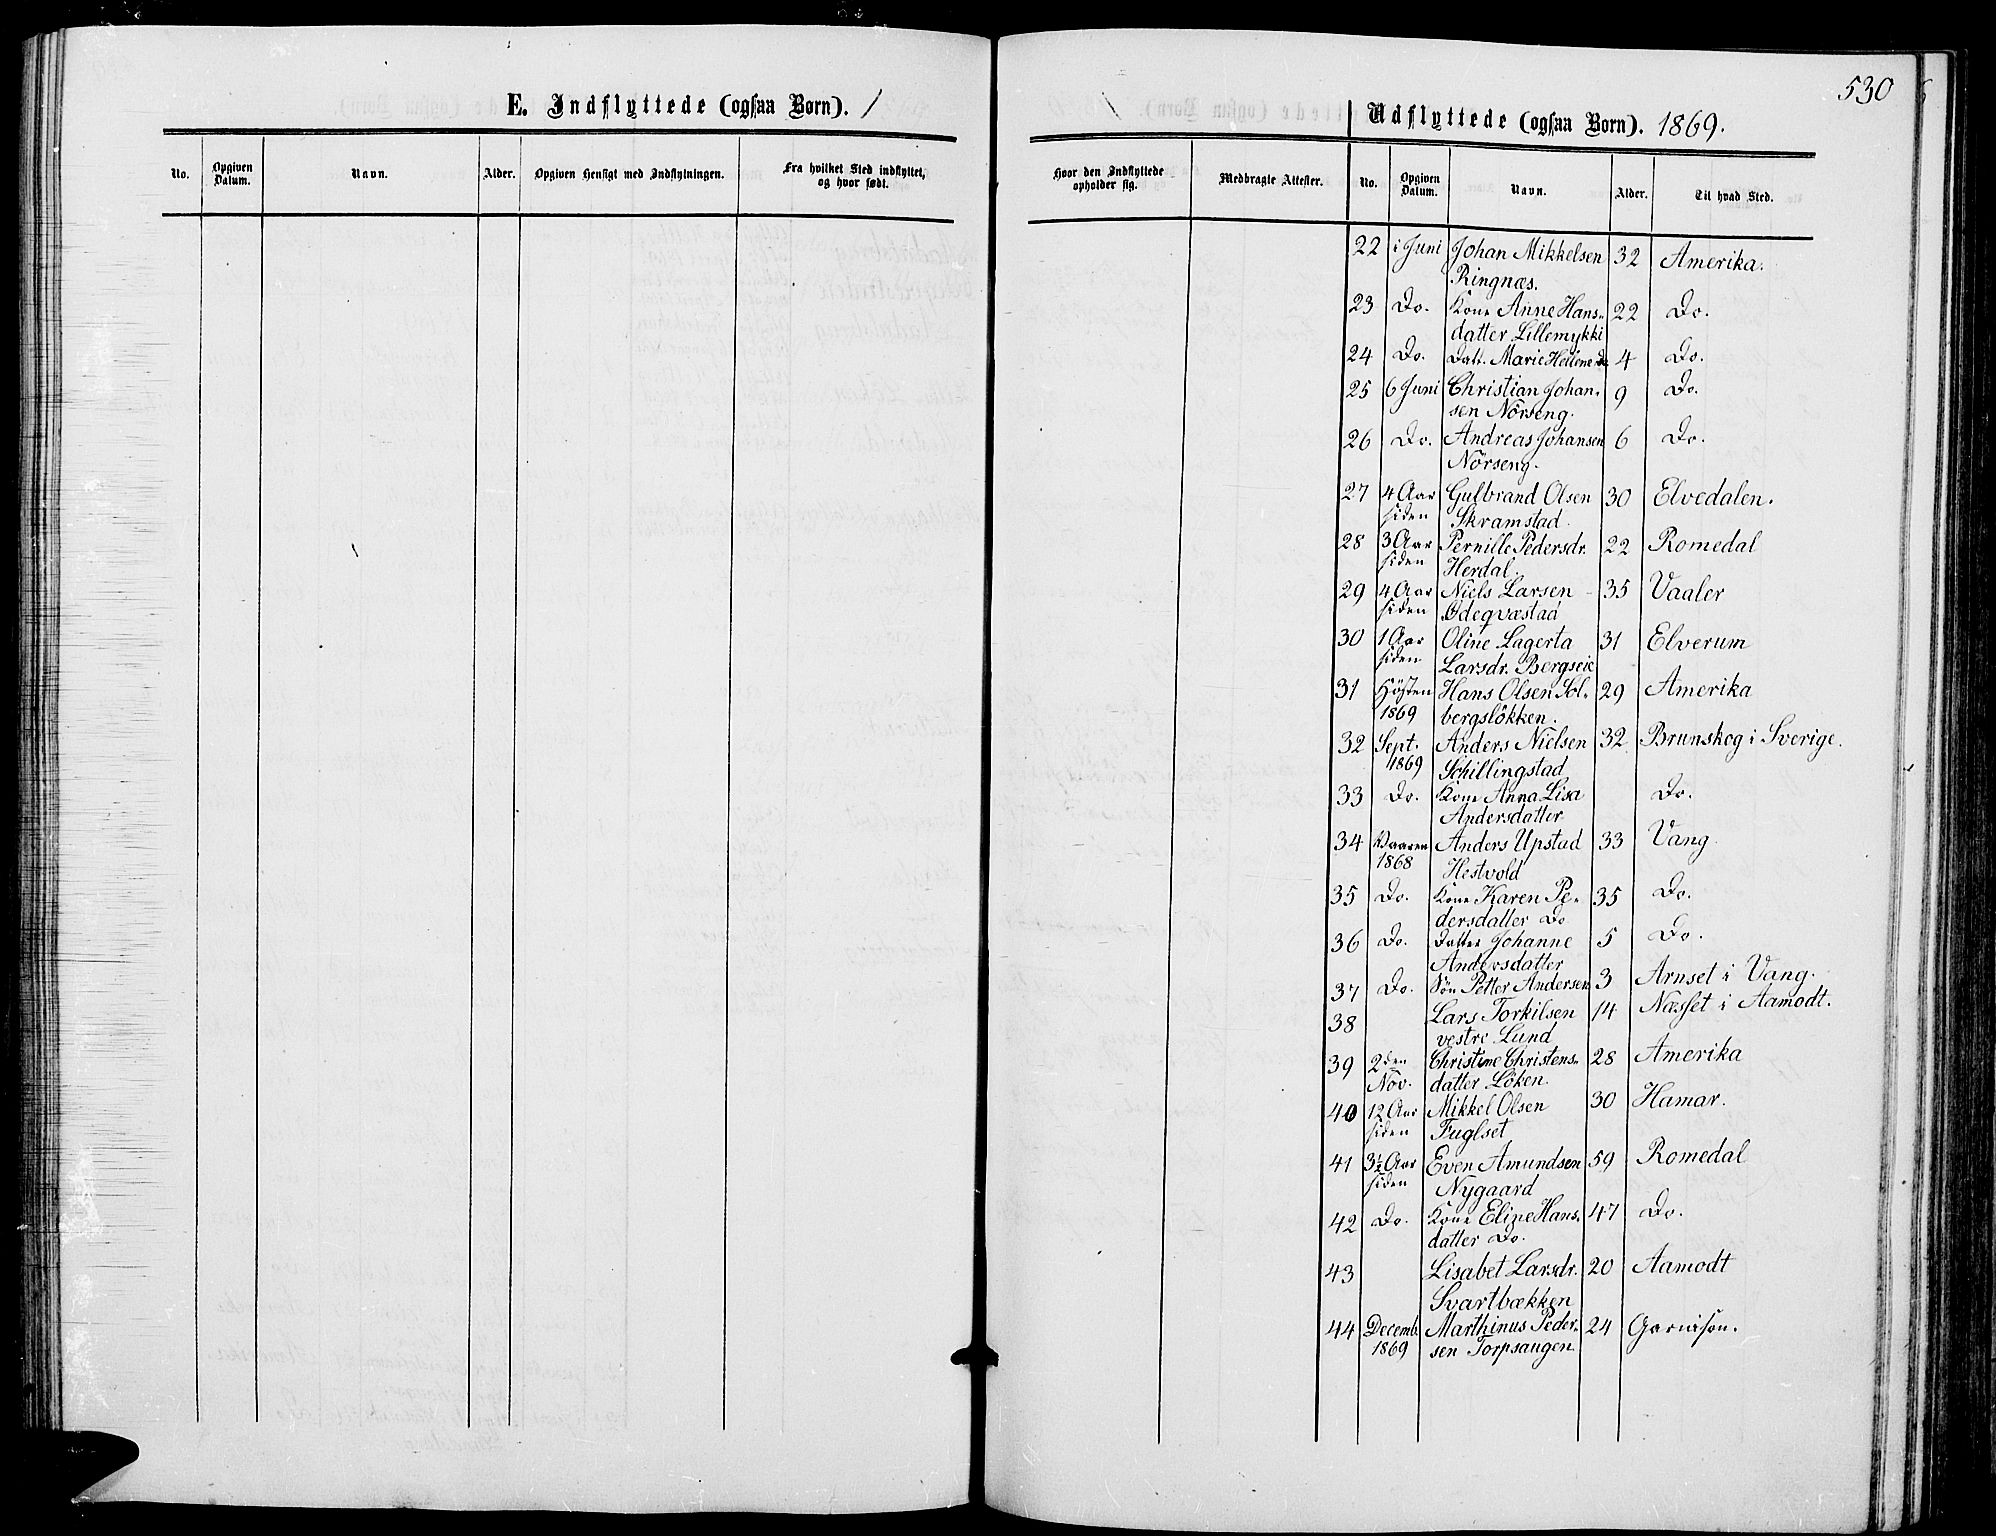 530
E. Indflyttede (ogsaa Børn). /
Udflyttede (ogsaa Børn). 1869.
No. Opgiven Datum. Navn. Alder. Opgiven Hensigt med Indflytningen. Fra hvilket Sted indflyttet, og hvor født.
Hvor den Indflyttede opholder sig. Medbragte Attester. No. Opgiven Datum. Navn. Alder. Til hvad Sted.
22 i Juni Johan Mikkelsen 32 Amerika.
Ringnæs.
23 Do. Kone Anne Hans- 22 Do.
datter Lillemykki
24 Do. Datt. Marie Hellene Do 4 Do.
25 6 Juni Christian Johan- 9 Do.
sen Nörseng.
26 Do. Andreas Johansen 6 Do.
Nörseng.
27 4 Aar Gulbrand Olsen 30 Elvedalen.
siden Skramstad.
28 3 Aar Pernille Pedersdr. 22 Romedal
siden Herdal.
29 4 Aar Niels Larsen 35 Vaaler
siden Ödeqvæstad
30 1 Aar Oline Lagerta 31 Elverum
siden Larsdr. Bergseie
31 Hösten Hans Olsen Sol- 29 Amerika
1869 bergslökken.
32 Sept. Anders Nielsen 32 Brunskog i Sverige.
1869 Schillingstad
33 Do. Kone Anna Lisa Do.
Andersdatter
34 Vaaren Anders Upstad 33 Vang
1868 Hestvold
35 Do. Kone Karen Pe- 35 Do.
dersdatter Do
36 Do. Datter Johanne 5 Do.
Andersdatter
37 Do. Sön Petter Andersen 3 Arnset i Vang.
38 Lars Torkilsen 14 Næsset i Aamodt.
vestre Lund
39 2den Christine Christens- 28 Amerika
Nov. datter Löken.
40 12 Aar Mikkel Olsen 30 Hamar.
siden Fuglset
41 3½ Aar Even Amundsen 59 Romedal
siden Nygaard
42 Do. Kone Eline Hans- 47 Do.
datter Do.
43 Lisabet Larsdr. 20 Aamodt
Svartbækken
44 Decemb. Marthinus Peder- 24 Garnison.
1869 sen Torpsaugen